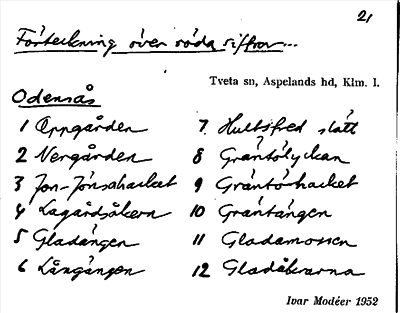 21
Förteckning över röda siffror...
Tveta sn, Aspelands hd, Klm. l.
Odensås
1 Oppgården
2 Nergården
3 Jon-Jönsahacket
4 Lagårdsåkern
5 Gladängen
6 Långängen
7 Hultsfred slätt
8 Gräntólyckan
9 Gräntórhacket
10 Gräntängen
11 Gladamossen
12 Gladåkrarna
Ivar Modéer 1952